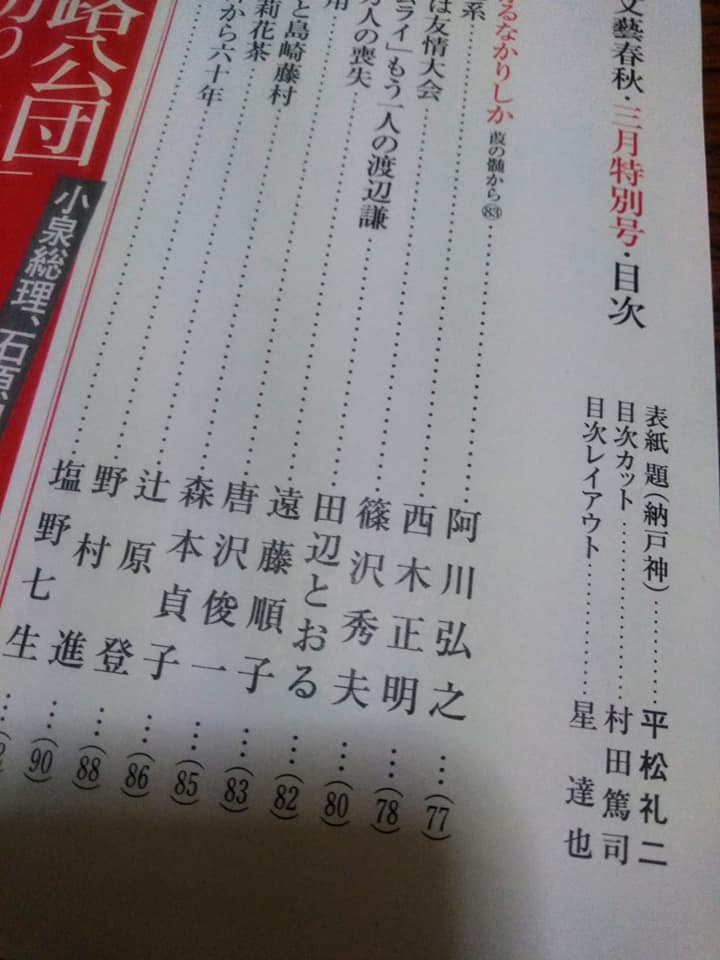 文藝春秋・三月特別号・目次
表紙 題(納戸神)………平松礼二
目次カット………村田篤司
目次レイアウト………星 達也
るなかりしか 葭の髄から㊃………阿川弘之…(77)
系………西木正明…(78)
は友情大会………篠沢秀夫…(80)
ムライ」もう一人の渡辺謙………田辺とおる…(82)
万人の喪失………遠藤順子…(83)
用………唐沢俊一…(85)
と島崎藤村………森本貞子…(86)
莉花茶………辻原 登…(88)
から六十年………野村 進…(90)
塩野七生…
路公団
小泉総理、石原